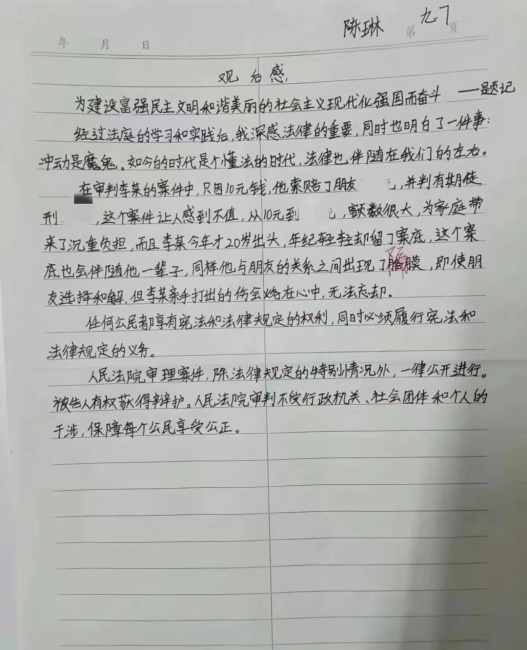 陈琳 九7
年 月 日 第 页
观后感
为建设富强民主文明和谐美丽的社会主义现代化强国而奋斗 ——题记
经过法庭的学习和实践后,我深感法律的重要,同时也明白了一件事:
冲动是魔鬼。如今的时代是个懂法的时代,法律也伴随在我们的左右。
在审判李某的案件中,只因10元钱,他索赔了朋友 元,并判有期徒
刑 ,这个案件让人感到不值,从10元到 元,额数很大,为家庭带
来了沉重负担,而且李某今年才20岁出头,年纪轻轻却留了案底,这个案
底也会伴随他一辈子,同样他与朋友的关系之间出现了膜,即使朋
隔
友选择和解,但李某亲手打出的伤会烙在心中,无法忘却。
任何公民都享有宪法和法律规定的权利,同时必须履行宪法和
法律规定的义务。
人民法院审理案件,除法律规定的特别情况外,一律公开进行。
被告人有权获得辩护。人民法院审判不受行政机关、社会团体和个人的
干涉,保障每个公民享受公正。